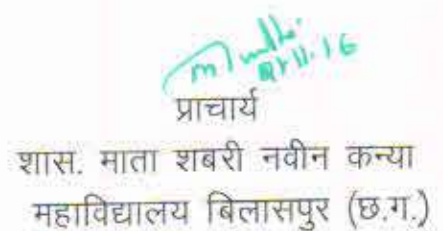 प्राचार्य
शास. माता शबरी नवीन कन्या
महाविद्यालय बिलासपुर (छ.ग.)